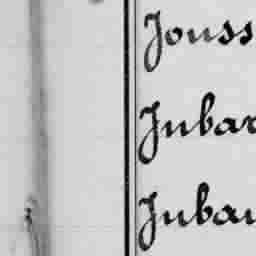 Jouss
Jubar
Jubau